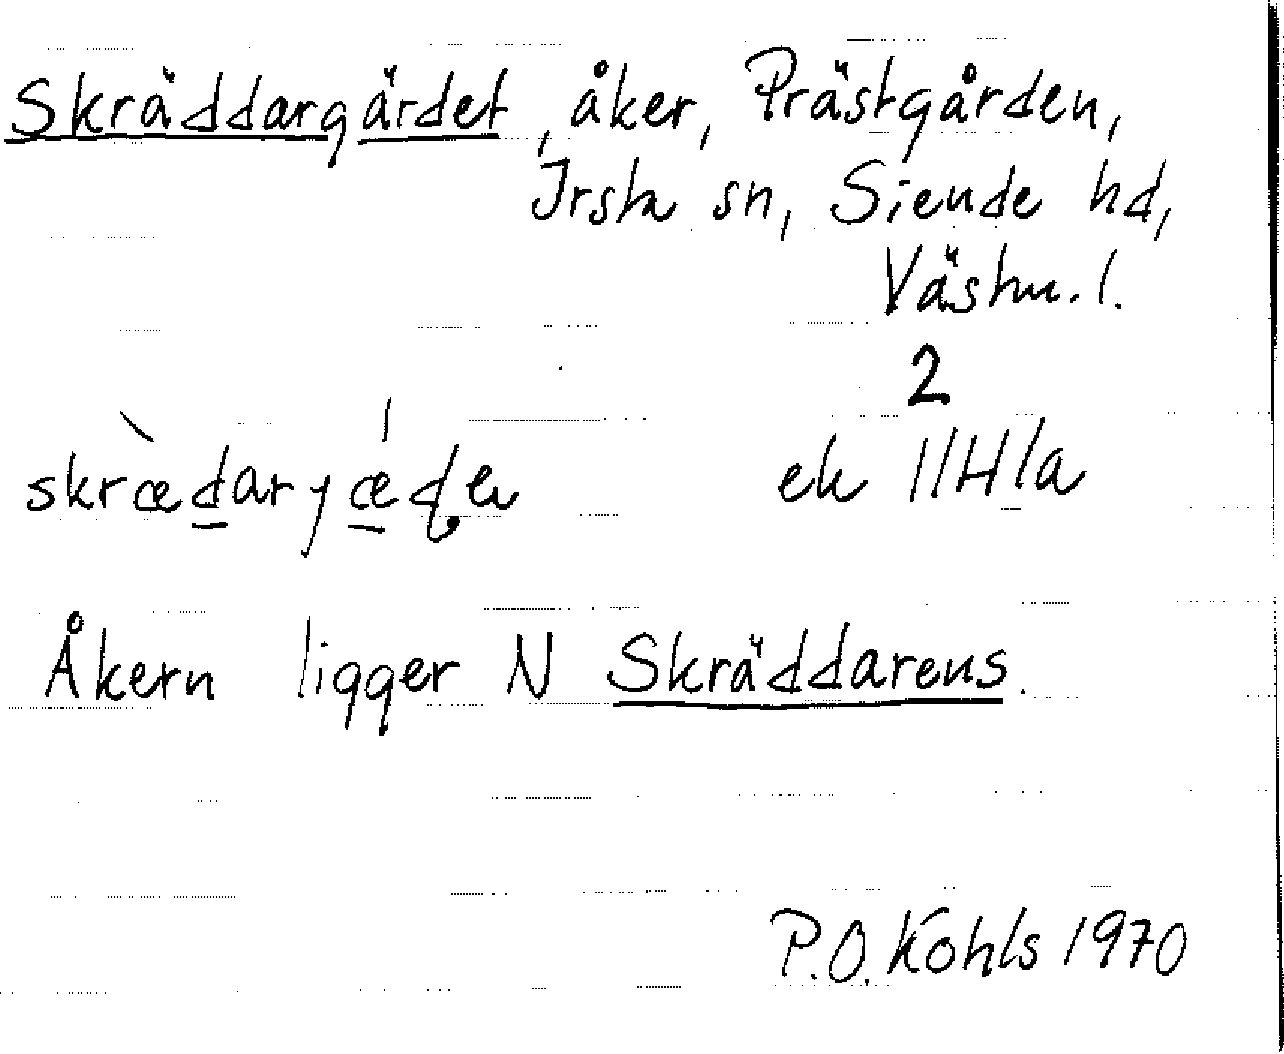 Skräddargärdet, åker, Prästgården,
Irsta sn, Siende hd,
Västm. l.
2
skrædaryæḍe
ek 11H1a
Åkern ligger N Skräddarens.
P.O. Kohls 1970